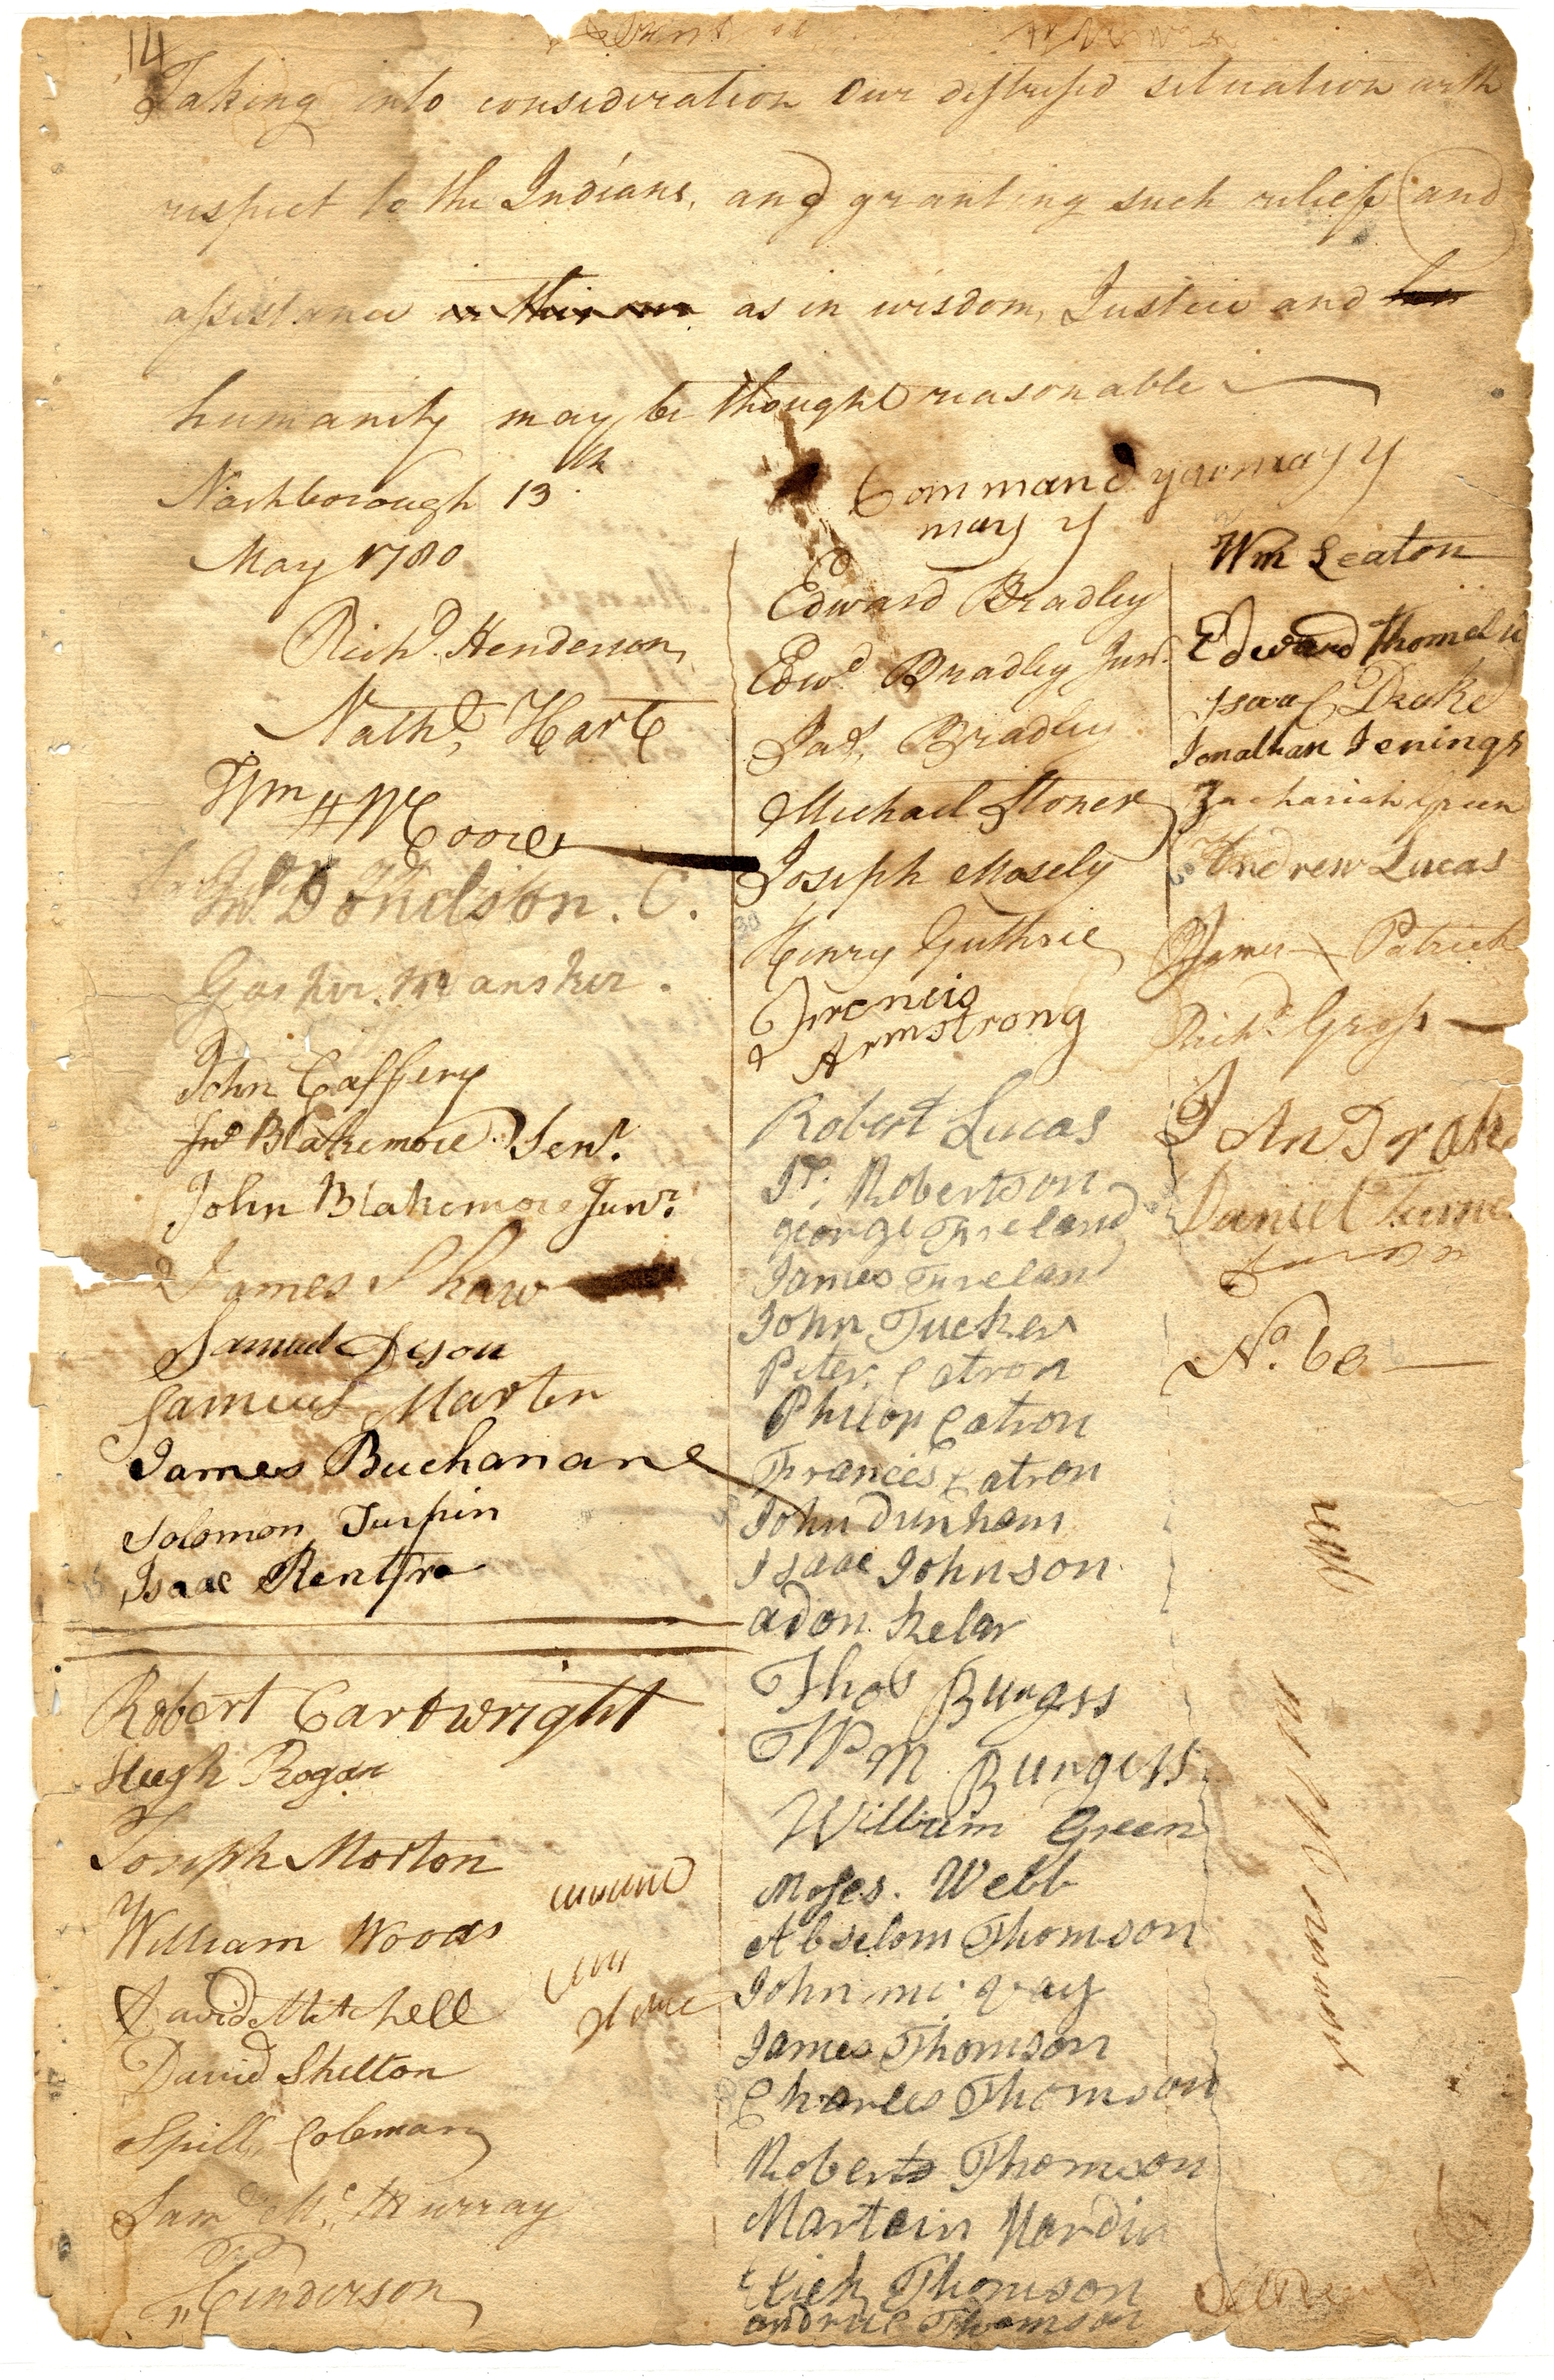 14
Taking into consideration our distressed situation with
respect to the Indians, and granting such relief (and
assistance as in wisdom, Justice and
humanity may be thought reasonable
Nashborough 13th
May 1780
Richd. Henderson
Nathl. Hart
Wm H Moore
Jno Donelson. C.
Gasker. Mansker.
John Caffery
Jno Blakemore Senr.
John Blakemore Junr.
James Shaw
Samuel Deson
Samuel Marten
James Buchanan
Solomon Turpin
Isaac Rentfro
Robert Cartwright
Hugh Rogan
Joseph Morton
William Woods
David Mitchell
David Shelton
Spill Coleman
Samd. Mc. Murray
P. Henderson
Command you may y
may y
Edward Bradley
Edwd Bradley Junr.
Jas. Bradley
Michael Stoner
Joseph Mosely
Henry Guthrie
Francis
Armstrong
Robert Lucas
Js. Robertson
george Freeland
James Freeland
John Tucker
Peter. Catron
Philop Catron
Francis Catron
John Dunham
Isaac Johnson
adon. Kelar
Thos Burgess
Wm Burgess
William Green
Moses. Webb
Abselom Thomson
John mc. vay
James Thomson
Charles Thomson
Robert Thomson
Martain Hardin
Elich Thomson
andrue Thomson
Wm Leaton
Edward Thomel
Isaac Drake
Jonathan Jenings
Zachariah Green
Andrew Lucas
James X Patrick
Richd. Gross
John Drake
Daniel Turner
No. 60